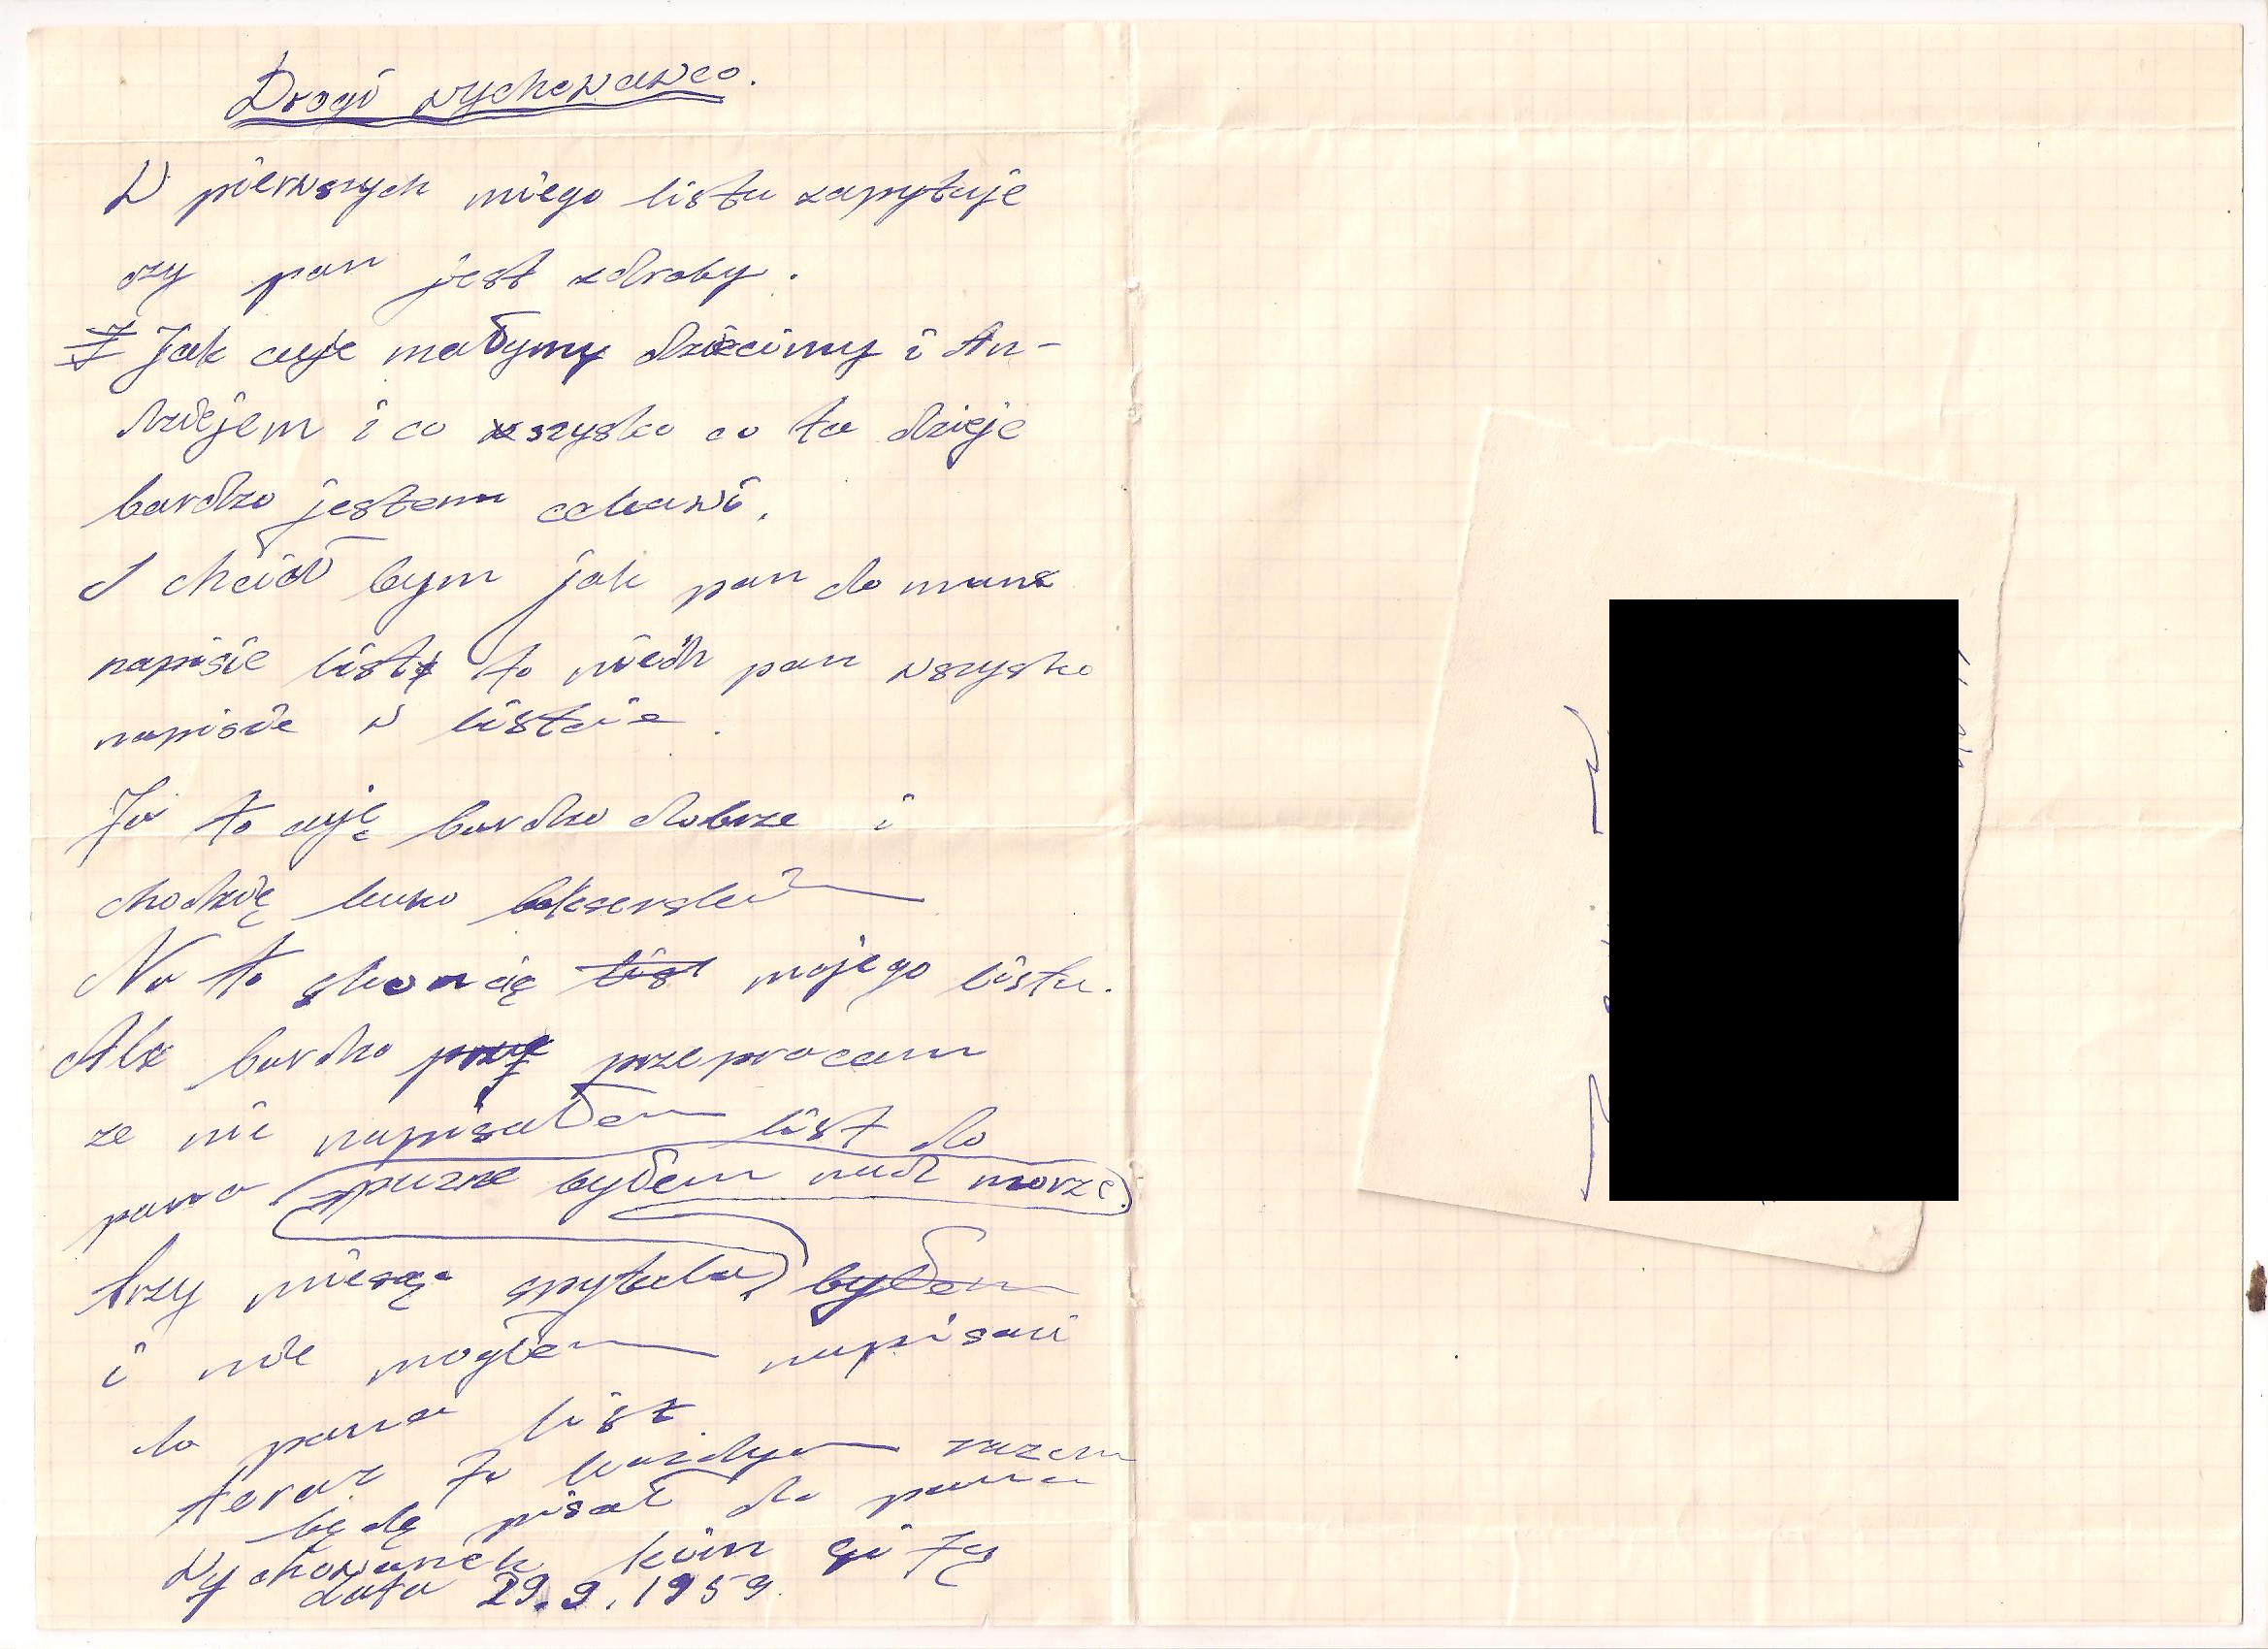 Drogi wychowawco.
W pierwszych miego listu zapytuje
czy pan jest zdroby.
I Jak cuje małymy dziecimy i An-
dziejem i co wszysko co to dzieje
bardzo jestem cekawi.
I chciał bym jak pan do mane
napisie list to niech pan wszysko
napisie w liscie.
Ja to cuję bardzo dobrze i
chodzię kurso bokserski
No to skoncię list mojego listu.
Ale bardzo przeprocam
ze ni napisałem list do
pana puzne byłem nad morze.
trzy miesąc spytalu byłem
i nie mogłem napisaci
do pana list
teraz za każdym razem
będę pisał do pana
Wychowanek kim
data 29.9.1959.